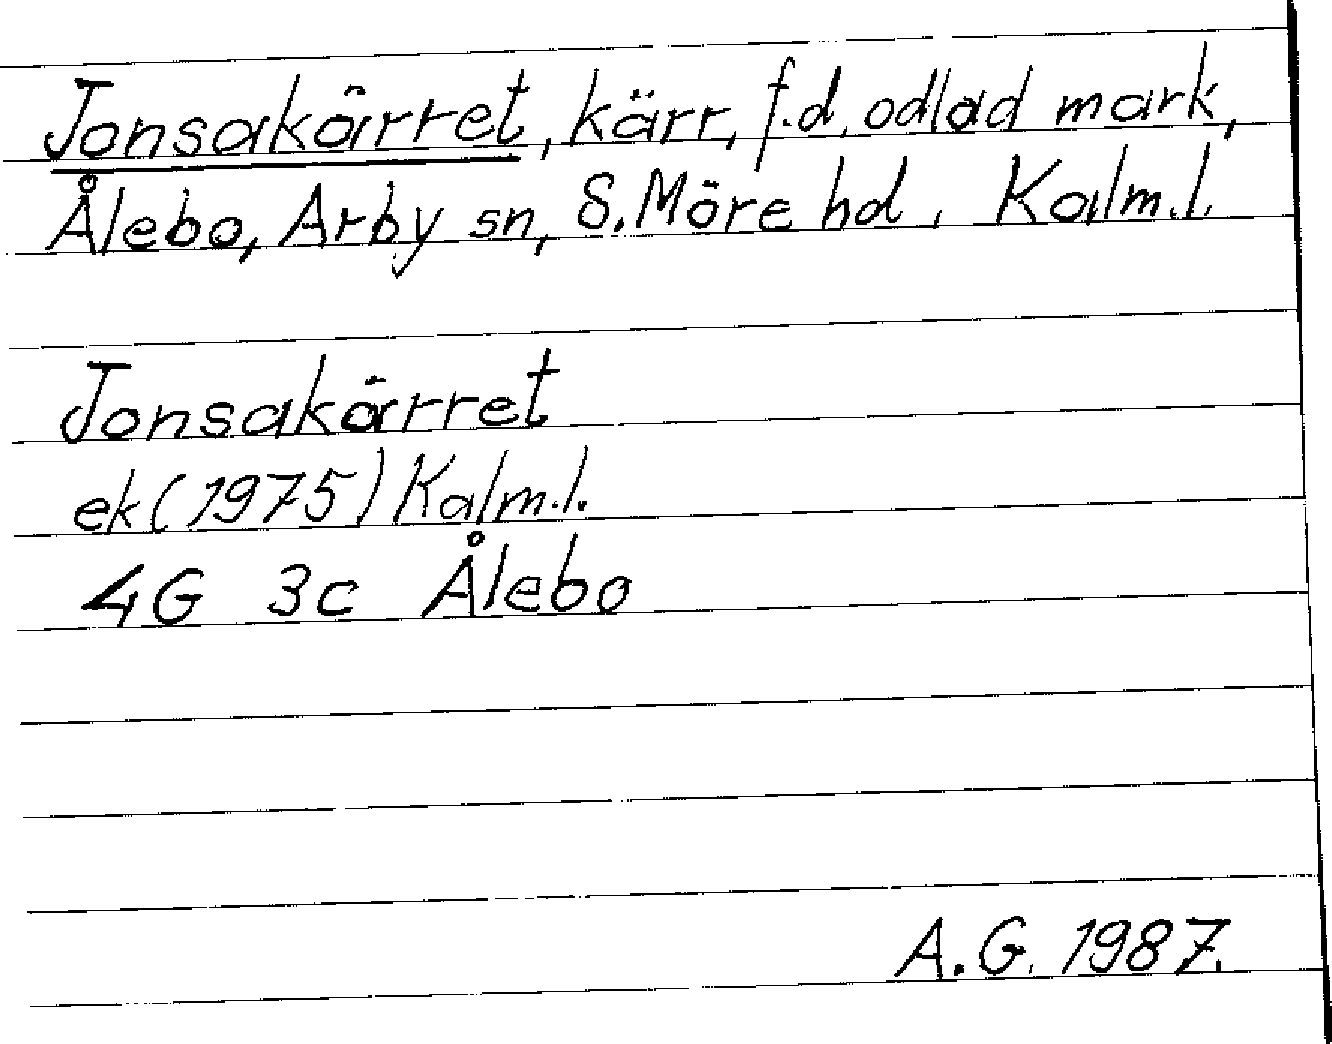 Jonsakärret, kärr, f.d. odlad mark,
Ålebo, Arby sn, S. Möre hd, Kalm.l.
Jonsakärret
ek (1975) Kalm.l.
4G 3c Ålebo
A.G. 1987.